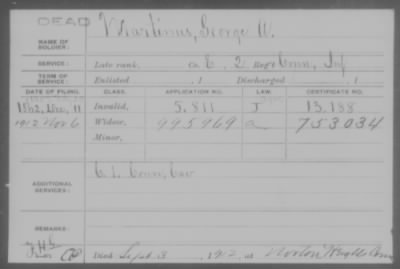 DEAD
NAME OF SOLDIER: Martinus, George W.
SERVICE: Late rank, Co. E, 2 Reg't Conn. Inf
TERM OF SERVICE: Enlisted , 1 Discharged , 1
DATE OF FILING. CLASS. APPLICATION NO. LAW. CERTIFICATE NO.
1862, Dec, 11 Invalid, 5,811 13,188
1912 Nov 6 Widow, 995969 a 753034
Minor,
ADDITIONAL SERVICES: C. 1. Conn. Cav
REMARKS: Died Sept. 3 , 1912, at Heights Conn